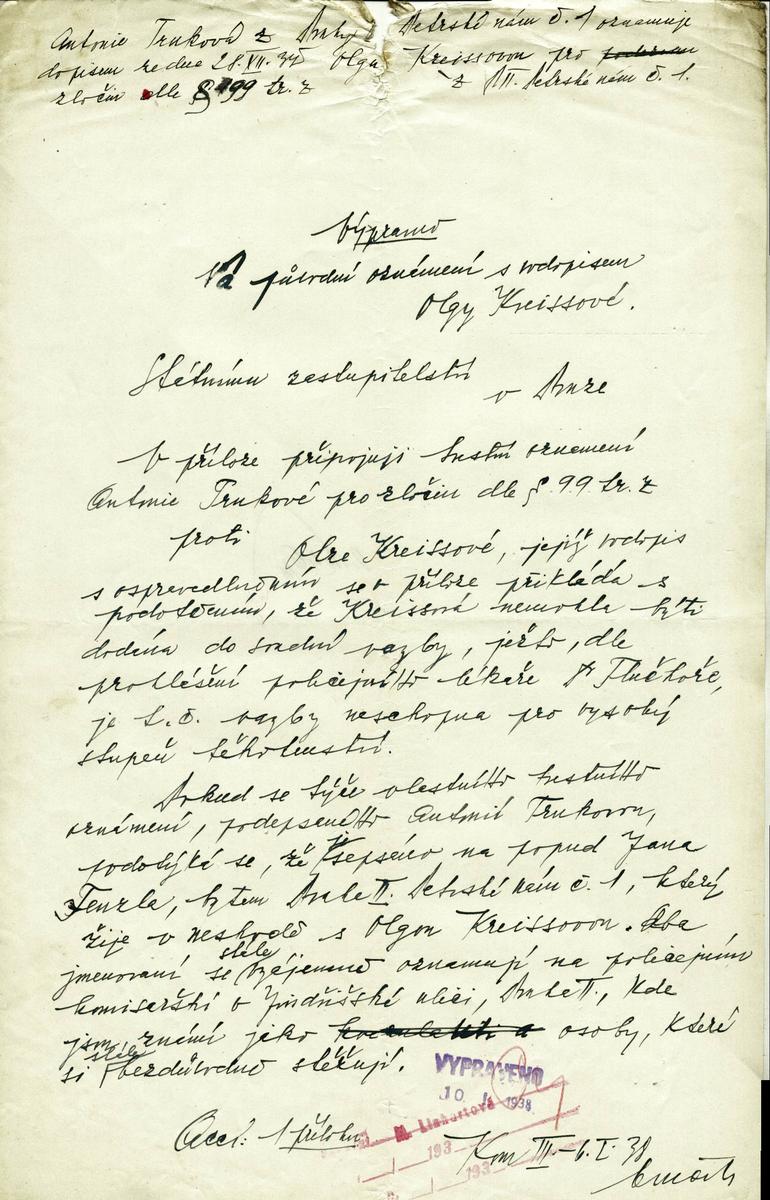 Antonie Trnková z Prahy II Petrské nám č. 1 oznamuje
dopisem ze dne 28.VII.37 Olgu Kreissovou pro
zločin dle § 99 tr. z z II. Petrské nám č. 1.
Výpravno
Na původní oznámení s rodopisem
Olgy Kreissové.
Státnímu zastupitelství
v Praze
V příloze připojuji trestní oznámení
Antonie Trnkové pro zločin dle § 99 tr. z
proti Olze Kreissové, jejíž rodopis
s ospravedlněním se v příloze přikládá s
podotčením, že Kreissová nemohla býti
dodána do soudní vazby, ježto, dle
prohlášení policejního lékaře Dr
je t. č. vazby neschopna pro vysoký
stupeň těhotenství.
Pokud se týče vlastního trestního
oznámení, podepsaného Antonií Trnkovou,
podotýká se, že je sepsáno na popud Jana
Fenzla, bytem Praha II. Petrské nám č. 1, který
žije v neshodě s Olgou Kreissovou. Oba
jmenovaní se stále vzájemně oznamují na policejním
komisařství v Jindřišské ulici, Praha II., kde
jsou známí jako osoby, které
si stále bezdůvodně stěžují.
VYPRAVENO
10 I 1938
M. Linhartová
193
193
Accl: 1 přílohu
Kom III - 6.I.38